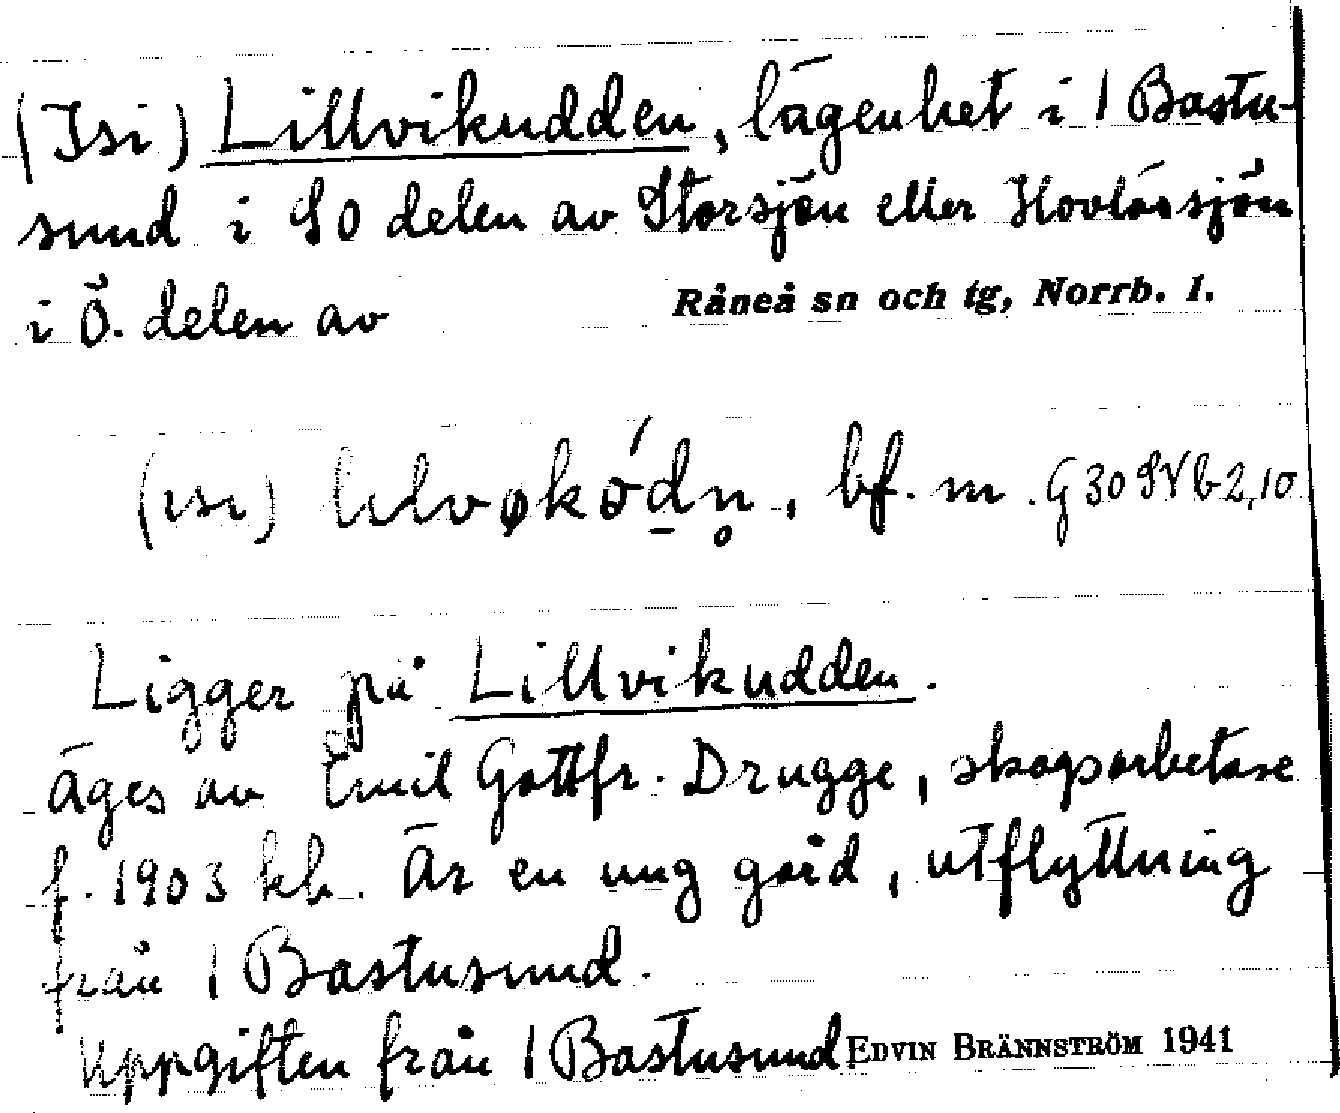 (Isi) Lillvikudden, lägenhet i 1 Bastu-
sund i SO delen av Storsjön eller Hovlössjön
i Ö. delen av Råneå sn och tg, Norrb. l.
(ısı) bf. m. G 30 SVb 2,10
Ligger på Lillvikudden.
Äges av Emil Gottfr. Drugge, skogsarbetare
f. 1903 kb. Är en ung gård, utflyttning
från 1 Bastusund.
Uppgiften från 1 Bastusund EDVIN BRÄNNSTRÖM 1941